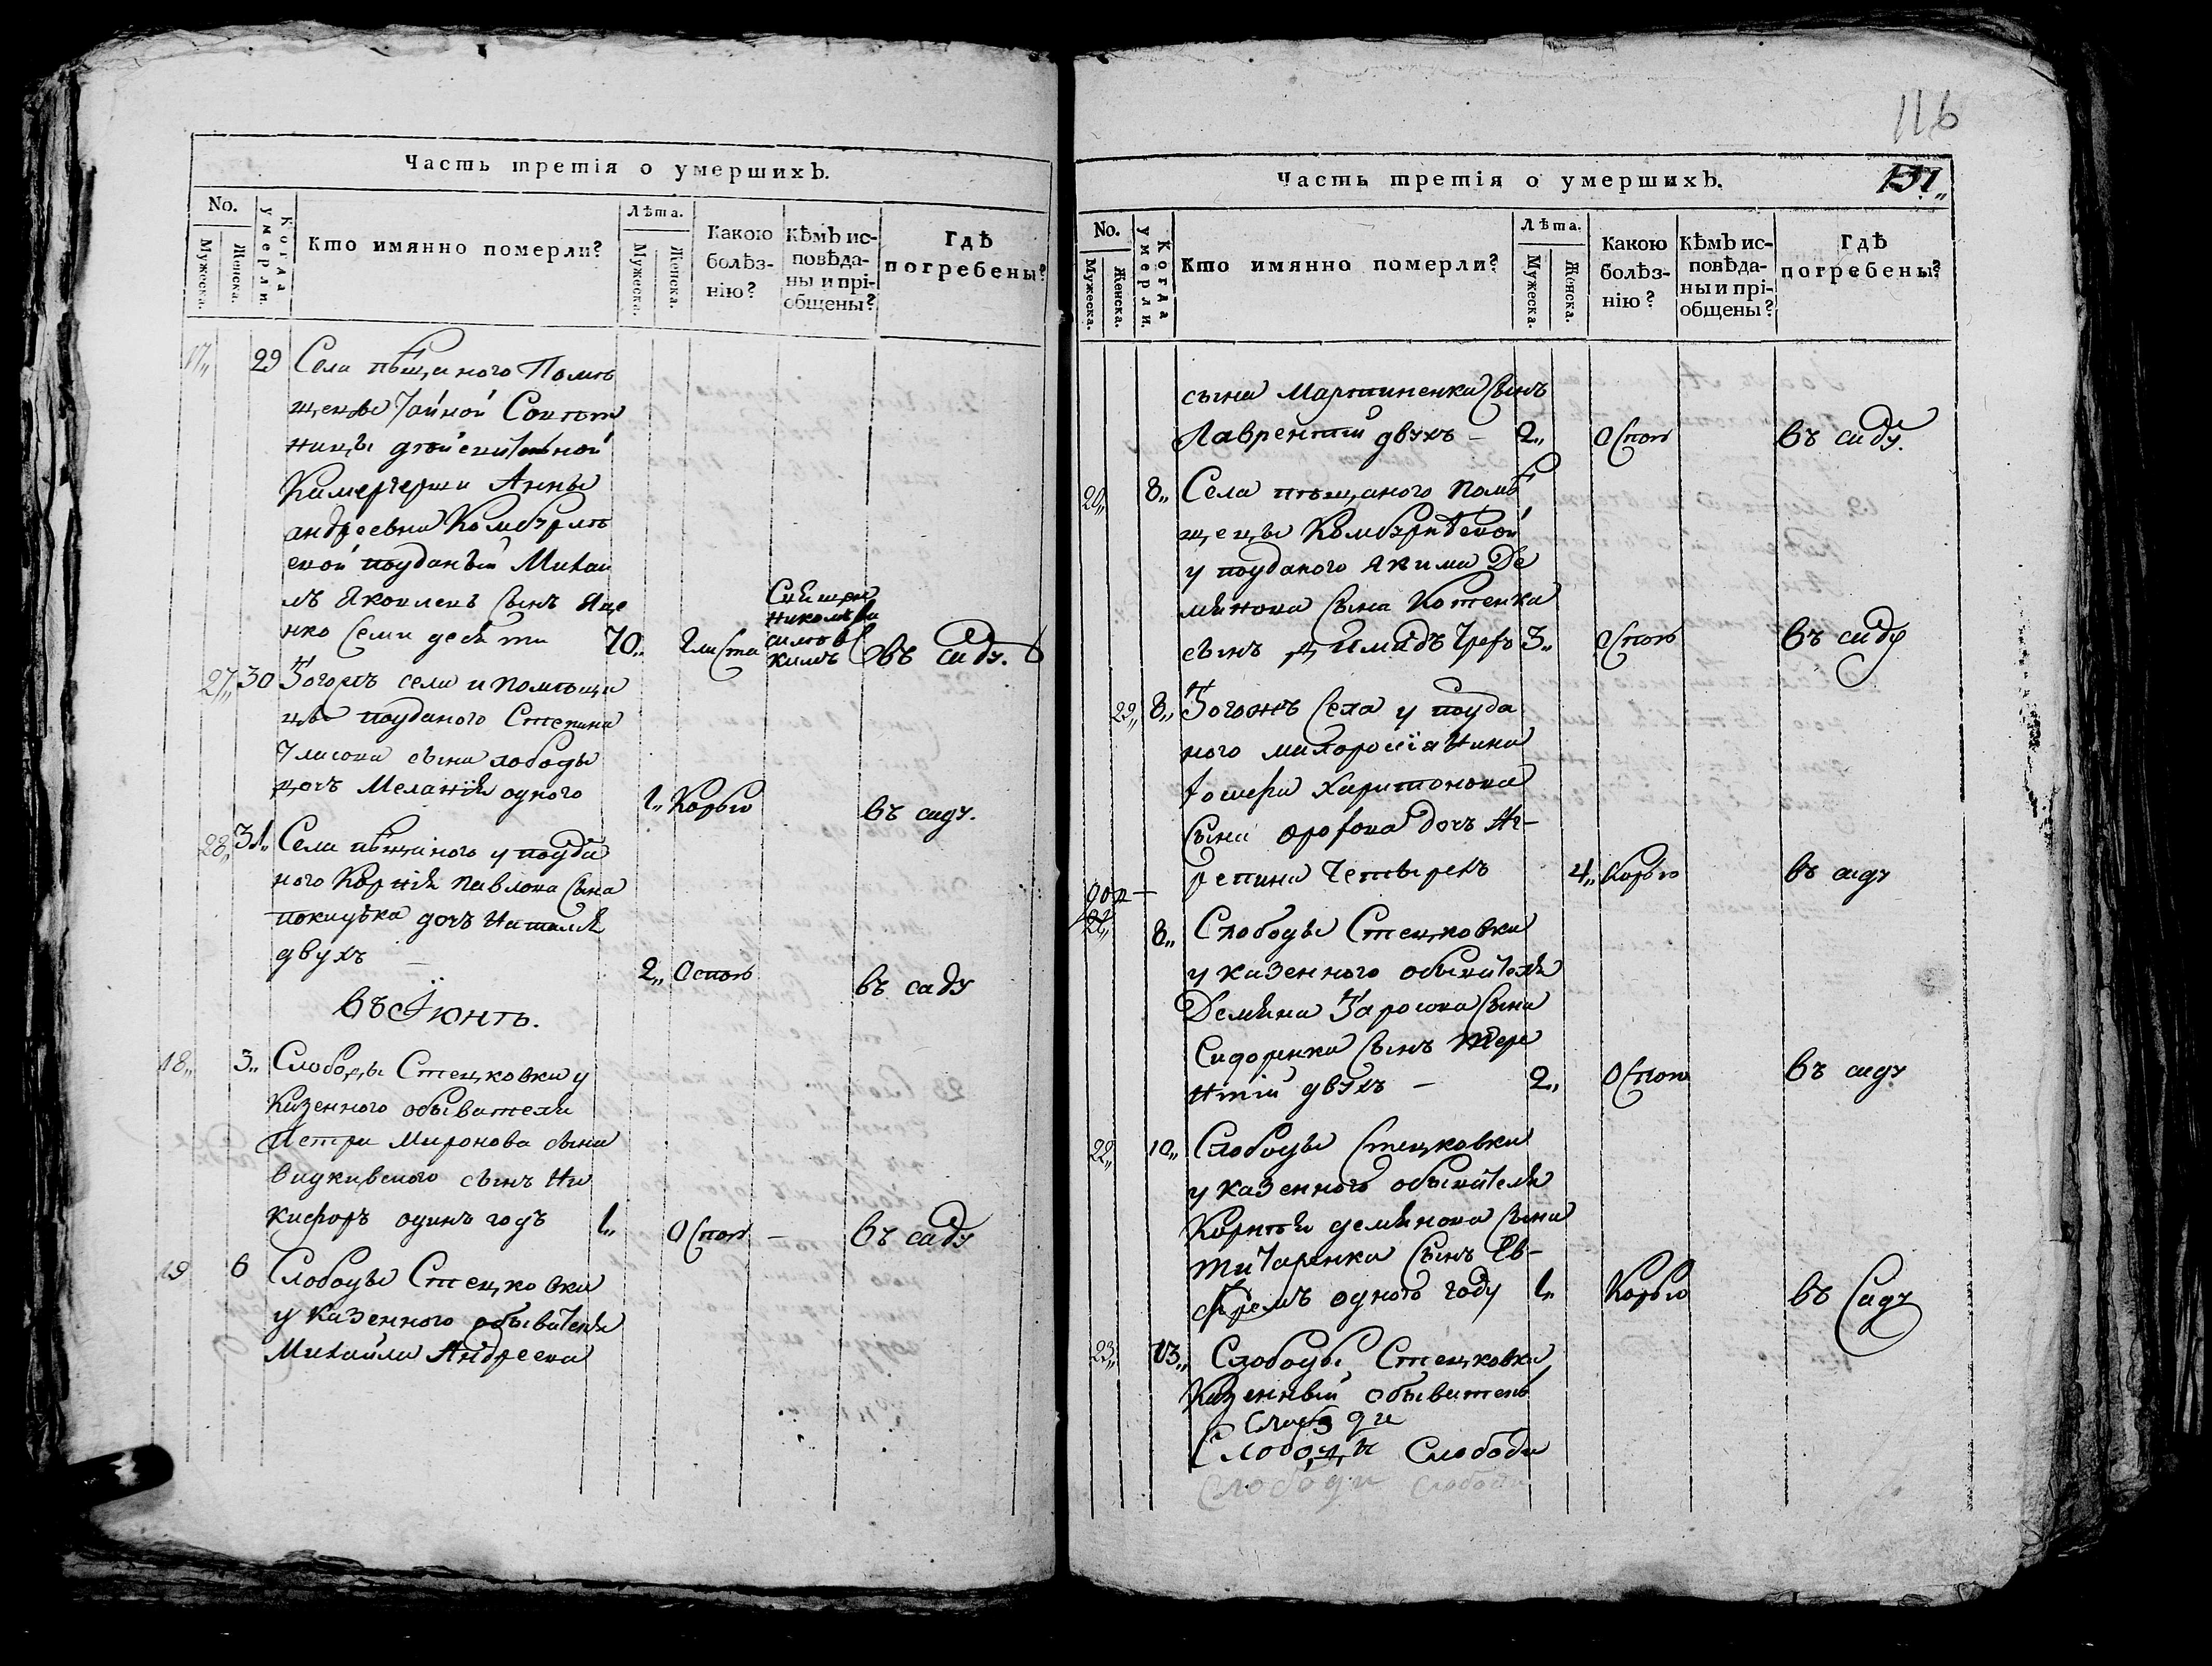 Часть третія о умершихъ.
No. Мужеска. Женска.
Когда умерли.
Кто имянно померли?
Лѣта. Мужеска. Женска.
Какою болѣз-
нію?
Кѣмъ ис-
повѣда-
ны и прі-
общены?
Гдѣ
погребены?
17„ 29 Села пѣщаного Помѣ
щецы тайной Совѣт
ницы
Камергерши Анны
андреевна
ской подданый Михаи
лъ Яковлевъ сынъ Яце
нко семи десяти 70„ въ саду.
27„ 30 Тогожъ села и помѣщи
цы подданого Степана
Уласова сына лободы
дочь Меланія одного 1„ Корью въ саду.
28„ 31„ Села пѣщаного у подда
ного Корнія павлова сына
дочь Наталія
двухъ 2„ Оспою въ саду
въ Іюнѣ.
18„ 3„ Слободы Стецковки у
Казенного обывателя
Петра Миронова сына
сынъ Ни
кифоръ одинъ годъ 1„ Оспою — въ саду
19 6 Слободы Стецковки
у Казенного обывателя
Михайла Андреева
116
Часть третія о умершихъ.
No. Мужеска. Женска.
Когда умерли.
Кто имянно померли?
Лѣта. Мужеска. Женска.
Какою болѣз-
нію?
Кѣмъ ис-
повѣда-
ны и прі-
общены?
Гдѣ
погребены?
сына Мартиненка сынъ
Лаврентій двухъ — 2„ Оспою въ саду.
20„ 8„ Села пѣщаного помѣ
щецы
у подданого Якима Де
мянова сына Котенка
сынъ трехъ 3„ Оспою въ саду
29„ 8„ Тогожъ села у подда
ного малоросіянина
Харитонова
сына дочь Аг-
репина Четырехъ 4„ Корью въ саду
8„ Слободы Стецковки
у казенного обывателя
Демяна Тарасова сына
Сидоренка сынъ Тере
нтій двухъ — 2„ Оспою въ саду
22„ 10„ Слободы Стецковки
у казенного обывателя
Корнѣя демянова сына
титаренка сынъ Ев-
фремъ одного году 1„ Корью въ Саду
23„ 13„ Слободы Стецковки
Казенный обыватель
Слободи
Слободи
Слободи Слободи